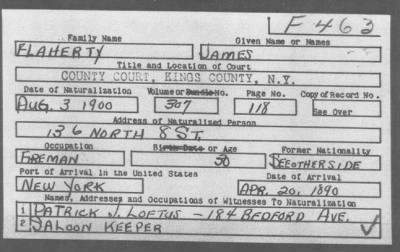 F 463
Family Name Given Name or Names
FLAHERTY JAMES
Title and Location of Court
COUNTY COURT, KINGS COUNTY, N.Y.
Date of Naturalization Volume or Bundle No. Page No. Copy of Record No.
AUG. 3 1900 307 118 See Over
Address of Naturalized Person
136 NORTH 8 ST.
Occupation Birth Date or Age Former Nationality
FIREMAN 30 SEE OTHER SIDE
Port of Arrival in the United States Date of Arrival
NEW YORK APR. 20, 1890
Names, Addresses and Occupations of Witnesses To Naturalization
1 PATRICK J. LOFTUS - 184 BEDFORD AVE.
2 SALOON KEEPER